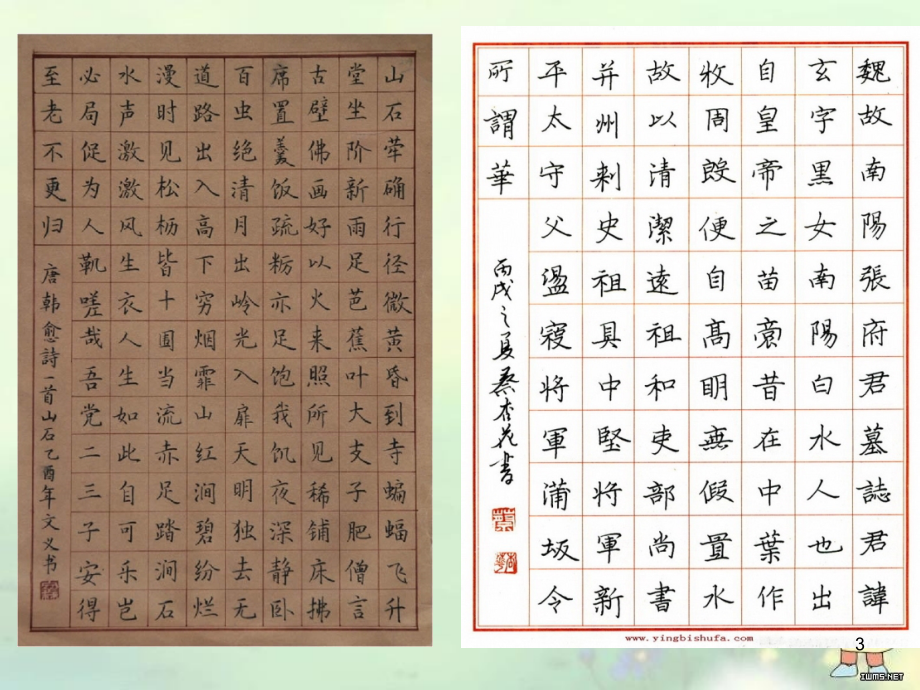 山石荦确行径微黄昏到寺蝙蝠飞升
堂坐阶新雨足芭蕉叶大支子肥僧言
古壁佛画好以火来照所见稀铺床拂
席置羹饭疏粝亦足饱我饥夜深静卧
百虫绝清月出岭光入扉天明独去无
道路出入高下穷烟霏山红涧碧纷烂
漫时见松枥皆十围当流赤足踏涧石
水声激激风生衣人生如此自可乐岂
必局促为人鞿嗟哉吾党二三子安得
至老不更归
唐韩愈詩一首山石乙酉年文义书
魏故南陽張府君墓誌君諱
玄字黑女南陽白水人也出
自皇帝之苗裔昔在中葉作
牧周殷便自高明無假置水
故以清潔遠祖和吏部尚書
并州刺史祖具中堅將軍新
平太守父盪寇將軍蒲坂令
所謂華
丙戌之夏蔡杏苑書
www.yingbishufa.com
3
IWMS.NET